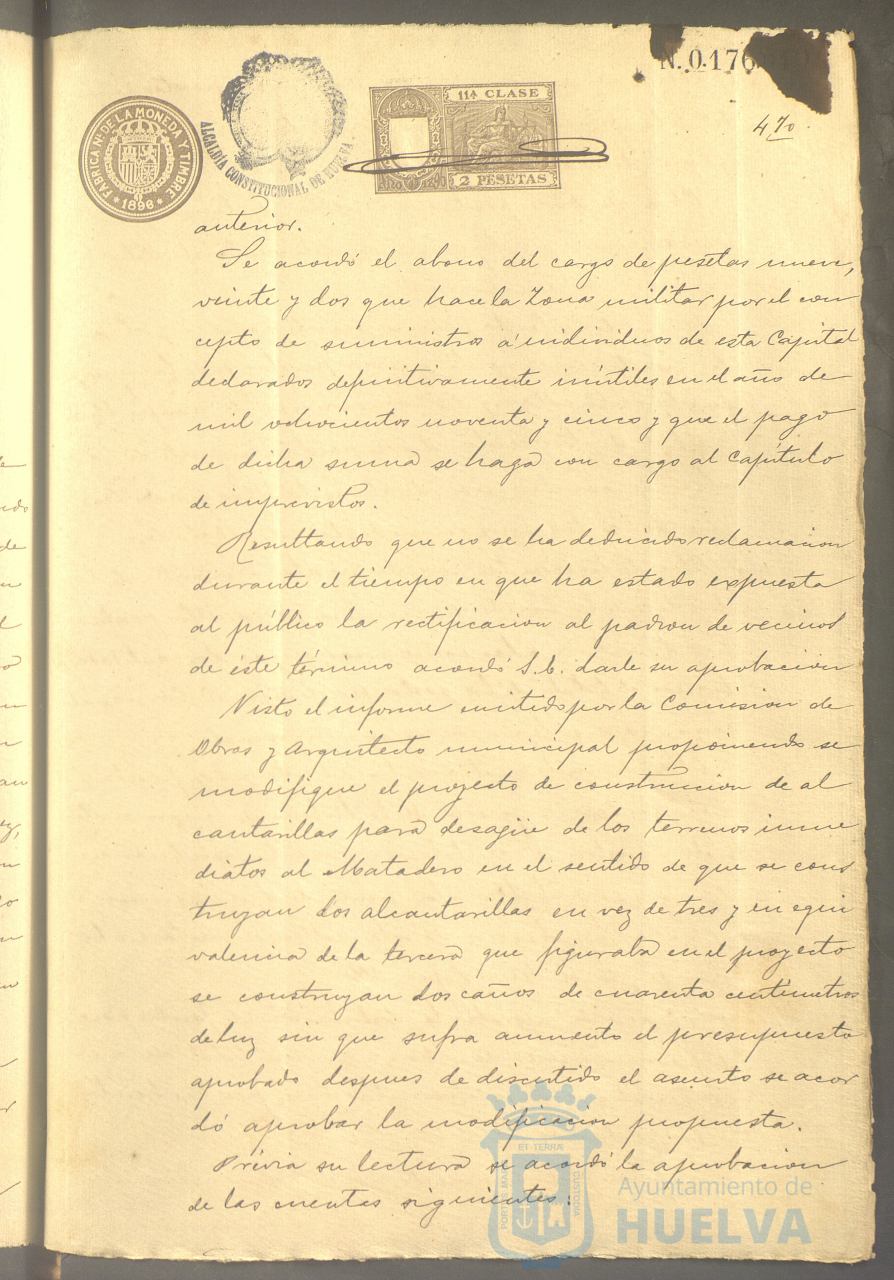 N. 0.176
470
FABRICA NAL. DE LA MONEDA Y TIMBRE
* 1896 *
ALCALDÍA CONSTITUCIONAL DE HUELVA.
11ª CLASE
AÑO 1896
2 PESETAS
anterior.
Se acordó el abono del cargo de pesetas nueve,
veinte y dos que hace la Zona militar por el con
cepto de suministros á individuos de esta Capital
declarados definitivamente inútiles en el año de
mil ochocientos noventa y cinco y que el pago
de dicha suma se haga con cargo al Capítulo
de imprevistos.
Resultando que no se ha deducido reclamacion
durante el tiempo en que ha estado expuesta
al público la rectificacion al padron de vecinos
de éste término acordó S.E. darle su aprobacion
Visto el informe emitido por la Comision de
Obras y Arquitecto municipal proponiendo se
modifique el proyecto de construccion de al
cantarillas para desagüe de los terrenos inme
diatos al Matadero en el sentido de que se cons
truyan dos alcantarillas en vez de tres y en equi
valencia de la tercera que figuraba en el proyecto
se construyan dos caños de cuarenta centímetros
de luz sin que sufra aumento el presupuesto
aprobado despues de discutido el asunto se acor
dó aprobar la modificacion propuesta.
Prévia su lectura se acordó la aprobacion
de las cuentas siguientes:
ET TERRÆ
PORTUS MARIS
CUSTODIA
Ayuntamiento de
HUELVA